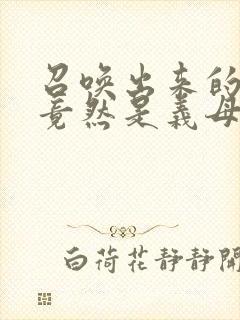 召唤出来的
竟然是义母
白荷花静静开